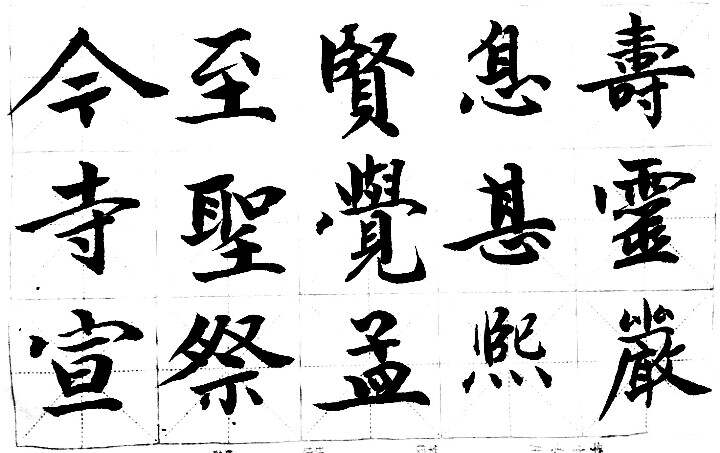 壽靈嚴
息甚熙
賢覺孟
至聖祭
今寺宣